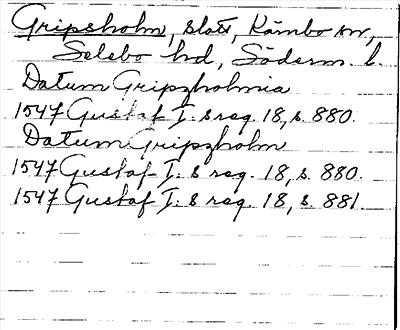 Gripsholm, slott, Kärnbo sn,
Selebo hd, Söderm. l.
Datum Gripszholmia
1547 Gustaf I:s reg. 18, s. 880.
Datum Gripszholm
1547 Gustaf I:s reg. 18, s. 880.
1547 Gustaf I:s reg. 18, s. 881